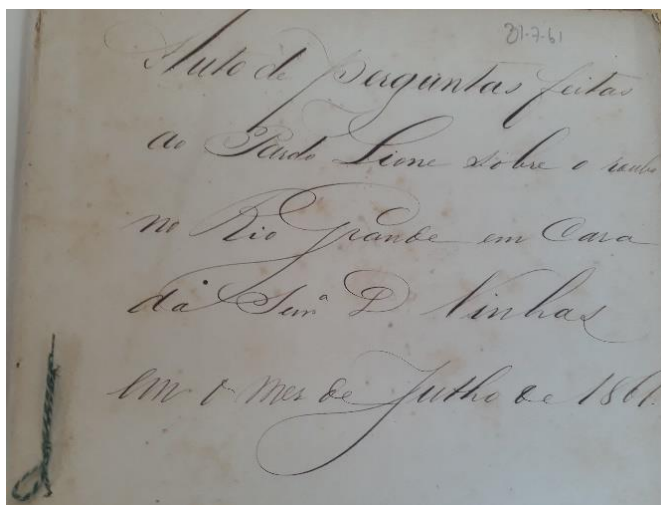 31-7-61
Auto de perguntas feitas
ao Pardo Lione sobre o roubo
no Rio Grande em Casa
da Senrª D Vinhas
em o mes de Julho de 1861